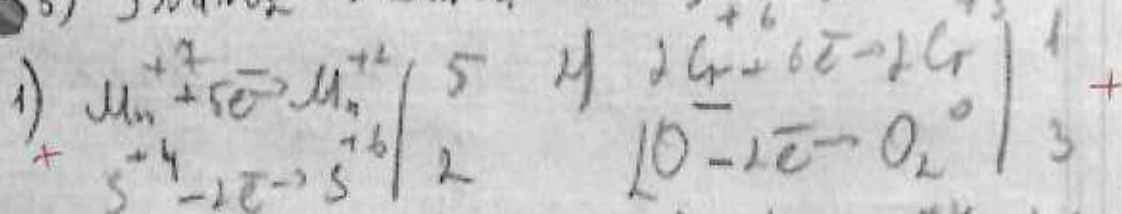 1) Mn⁺⁷ + 5e̅ → Mn⁺² | 5
S⁺⁴ - 2e̅ → S⁺⁶ | 2
2Cr⁺⁶ + 6e̅ → 2Cr | 1
2O⁻ - 2e̅ → O₂⁰ | 3